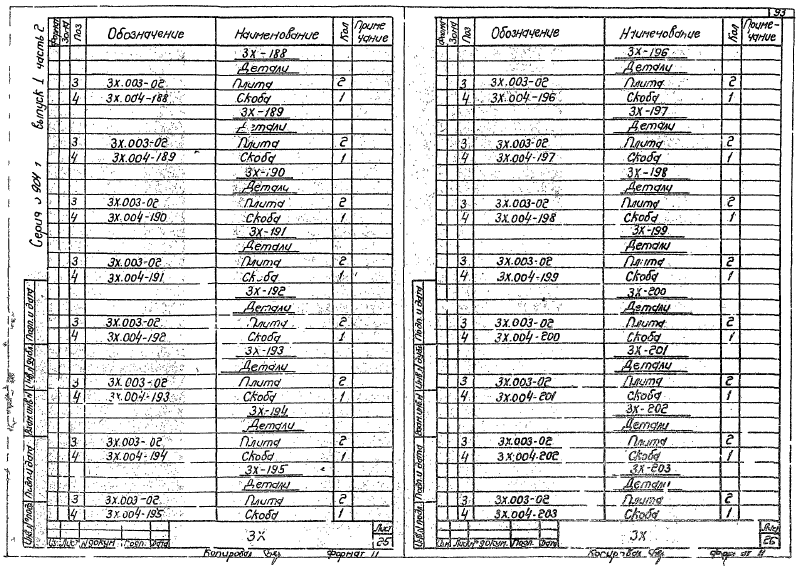 93
Серия выпуск 1 часть 2
Формат Зона Поз Обозначение Наименование Кол Приме-чание
3Х-188
Детали
3 3Х.003-02 Плита 2
4 3Х.004-188 Скоба 1
3Х-189
Детали
3 3Х.003-02 Плита 2
4 3Х.004-189 Скоба 1
3Х-190
Детали
3 3Х.003-02 Плита 2
4 3Х.004-190 Скоба 1
3Х-191
Детали
3 3Х.003-02 Плита 2
4 3Х.004-191 Скоба 1
3Х-192
Детали
3 3Х.003-02 Плита 2
4 3Х.004-192 Скоба 1
3Х-193
Детали
3 3Х.003-02 Плита 2
4 3Х.004-193 Скоба 1
3Х-194
Детали
3 3Х.003-02 Плита 2
4 3Х.004-194 Скоба 1
3Х-195
Детали
3 3Х.003-02 Плита 2
4 3Х.004-195 Скоба 1
Инв.№ подл. Подп. и дата Взам.инв.№ Инв.№ дубл. Подп. и дата
Из. Лист № докум. Подп. Дата
3Х
Лист
25
Копировал Формат 11
Формат Зона Поз Обозначение Наименование Кол Приме-чание
3Х-196
Детали
3 3Х.003-02 Плита 2
4 3Х.004-196 Скоба 1
3Х-197
Детали
3 3Х.003-02 Плита 2
4 3Х.004-197 Скоба 1
3Х-198
Детали
3 3Х.003-02 Плита 2
4 3Х.004-198 Скоба 1
3Х-199
Детали
3 3Х.003-02 Плита 2
4 3Х.004-199 Скоба 1
3Х-200
Детали
3 3Х.003-02 Плита 2
4 3Х.004-200 Скоба 1
3Х-201
Детали
3 3Х.003-02 Плита 2
4 3Х.004-201 Скоба 1
3Х-202
Детали
3 3Х.003-02 Плита 2
4 3Х.004-202 Скоба 1
3Х-203
Детали
3 3Х.003-02 Плита 2
4 3Х.004-203 Скоба 1
Инв.№ подл. Подп. и дата Взам.инв.№ Инв.№ дубл. Подп. и дата
Изм. Лист № докум. Подп. Дата
3Х
Лист
26
Копировал Формат 11